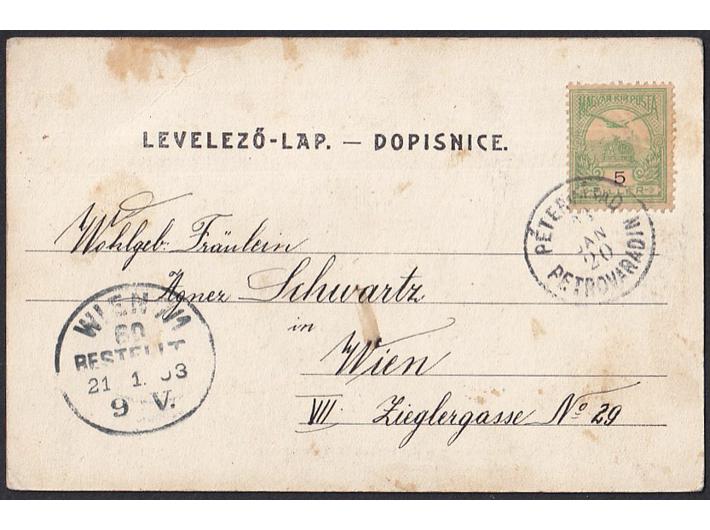 LEVELEZŐ-LAP. — DOPISNICE.
MAGYAR KIR. POSTA
5
FILLER
PÉTERVÁRAD
JAN
20
PETROVARADIN
Wohlgeb. Fräulein
Agnes Schwartz
in
Wien
VII Zieglergasse No 29
WIEN
BESTELLT
21 1. 03
9 V.